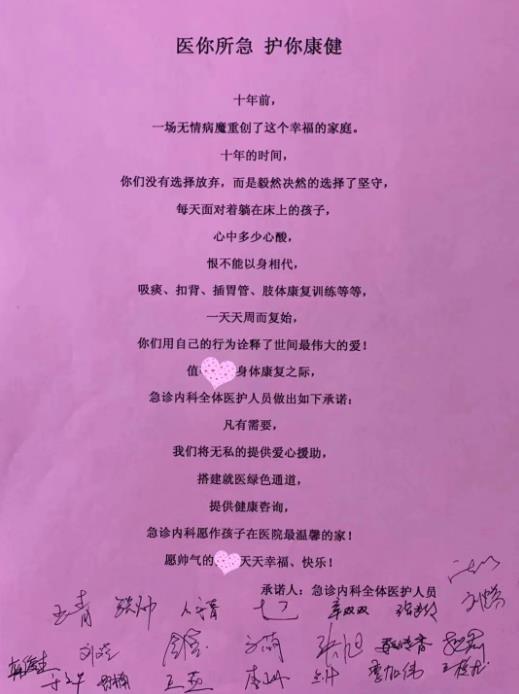 医你所急 护你康健
十年前，
一场无情病魔重创了这个幸福的家庭。
十年的时间，
你们没有选择放弃，而是毅然决然的选择了坚守，
每天面对着躺在床上的孩子，
心中多少心酸，
恨不能以身相代，
吸痰、扣背、插胃管、肢体康复训练等等，
一天天周而复始，
你们用自己的行为诠释了世间最伟大的爱！
值 身体康复之际，
急诊内科全体医护人员做出如下承诺：
凡有需要，
我们将无私的提供爱心援助，
搭建就医绿色通道，
提供健康咨询，
急诊内科愿作孩子在医院最温馨的家！
愿帅气的 天天幸福、快乐！
承诺人：急诊内科全体医护人员